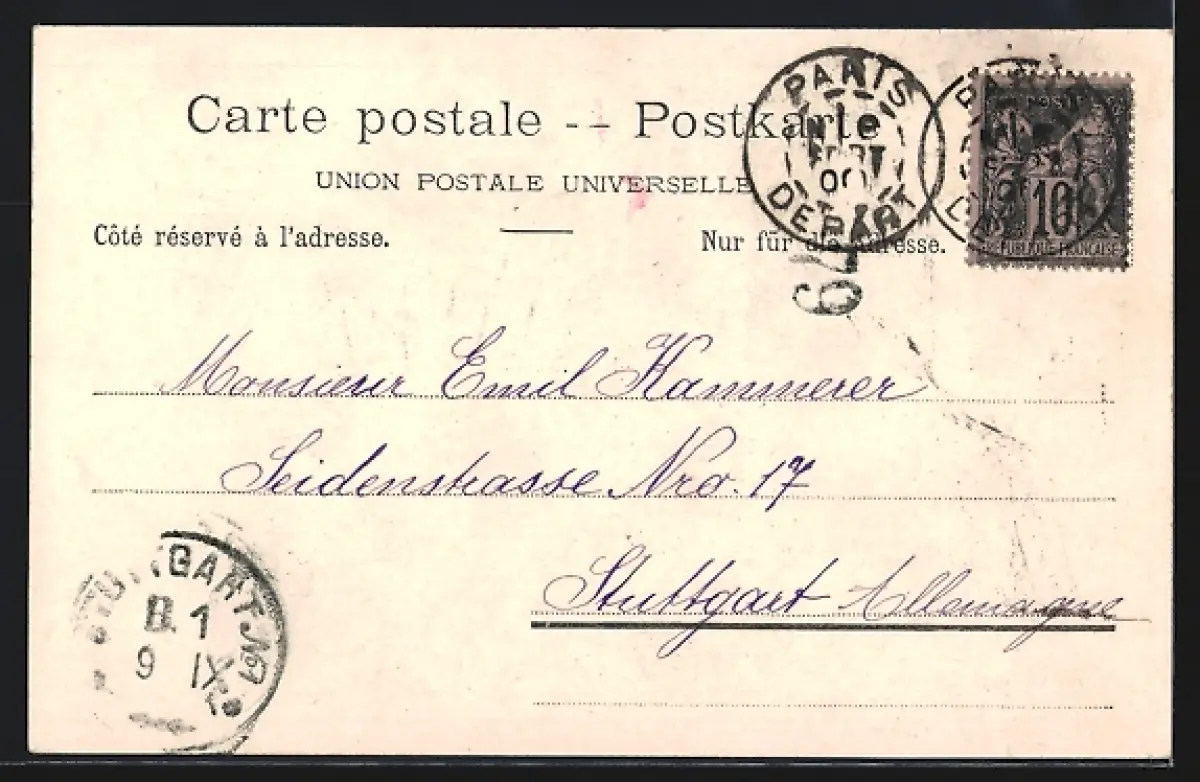 Carte postale -- Postkarte
UNION POSTALE UNIVERSELLE
Côté réservé à l'adresse.
Nur für die Adresse.
PARIS
SEPT
00
DEPART
POSTE
10
REPUBLIQUE FRANÇAISE
79
Monsieur Emil Kammerer
Seidenstrasse Nro. 17
Stuttgart Allemagne
STUTTGART No 1
B. 1
9 IX